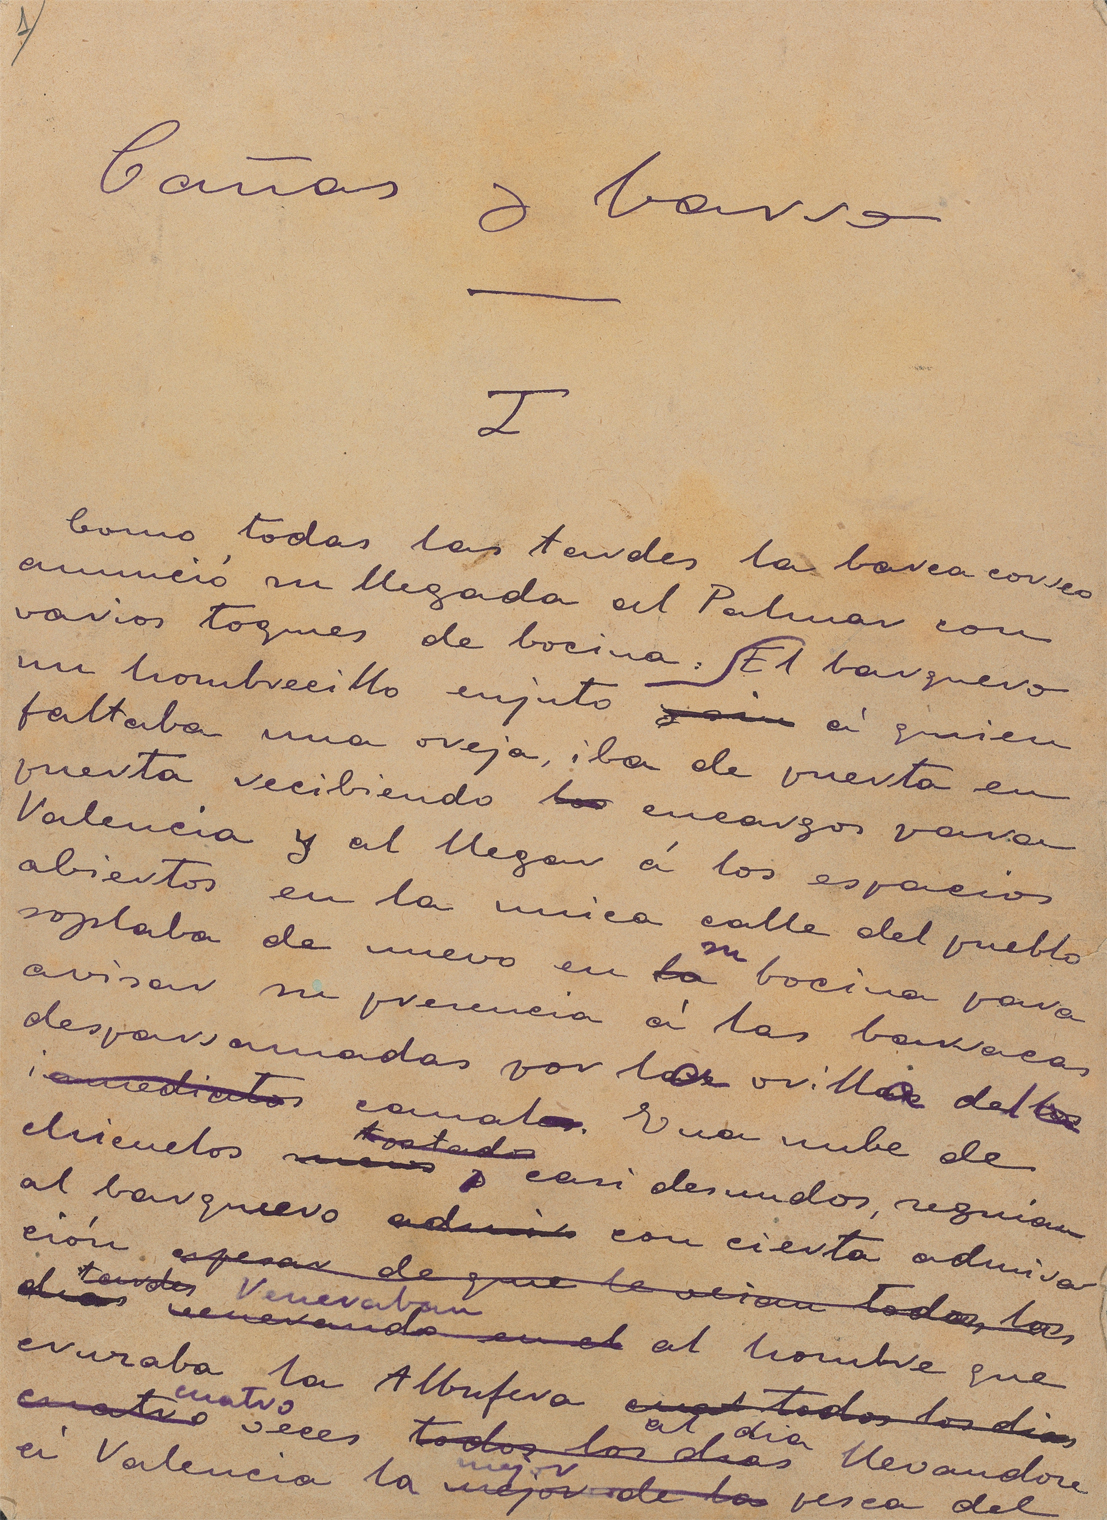 1)
Cañas y barro
I
Como todas las tardes la barca correo
anunció su llegada al Palmar con
varios toques de bocina. El barquero
un hombrecillo enjuto y sin á quien
faltaba una oreja, iba de puerta en
puerta recibiendo los encargos para
Valencia y al llegar á los espacios
abiertos en la unica calle del pueblo
su
soplaba de nuevo en la bocina para
avisar su presencia á las barracas
desparramadas por las orillas del los
inmediatos canales. Una nube de
tostados
chicuelos y casi desnudos, seguian
al barquero admir con cierta admira
ción apesar de que le veian todos, las
tardes Veneraban
dias venerando en el al hombre que
cruzaba la Albufera todos los dias
cuatro al dia
cuatro veces todos los dias llevandose
mejor
á Valencia la mejor de la pesca del